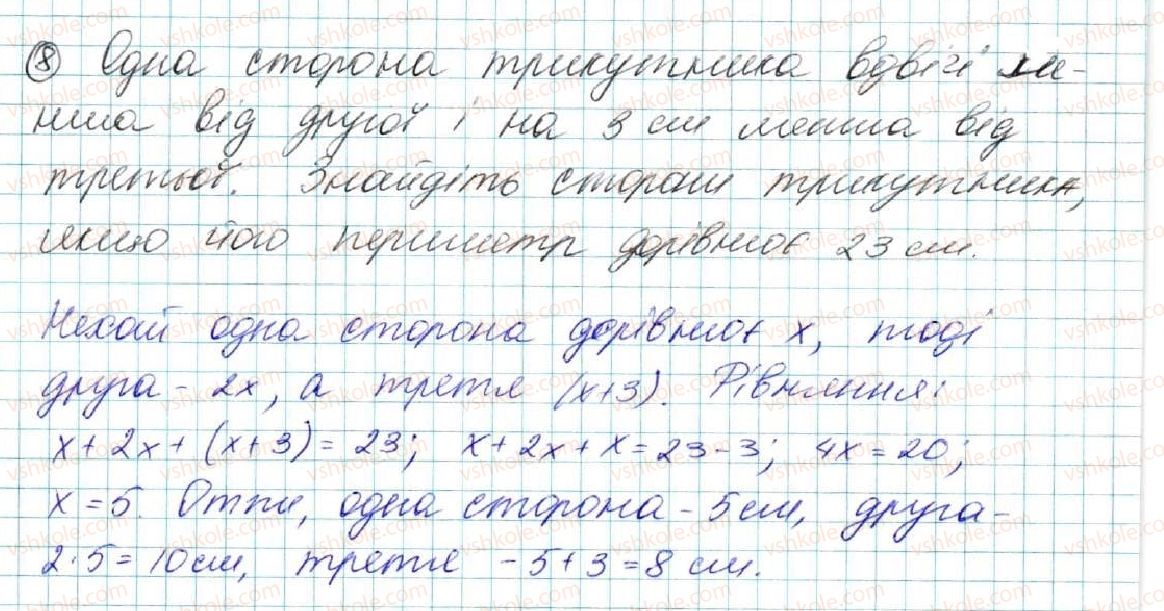 ⑧ Одна сторона трикутника вдвічі ме-
нша від другої і на 3 см менша від
третьої. Знайдіть сторони трикутника,
якщо його периметр дорівнює 23 см.
Нехай одна сторона дорівнює x, тоді
друга - 2x, а третя (x+3). Рівняння:
x + 2x + (x+3) = 23; x + 2x + x = 23 - 3; 4x = 20;
x = 5. Отже, одна сторона - 5 см, друга -
2·5 = 10 см, третя - 5 + 3 = 8 см.